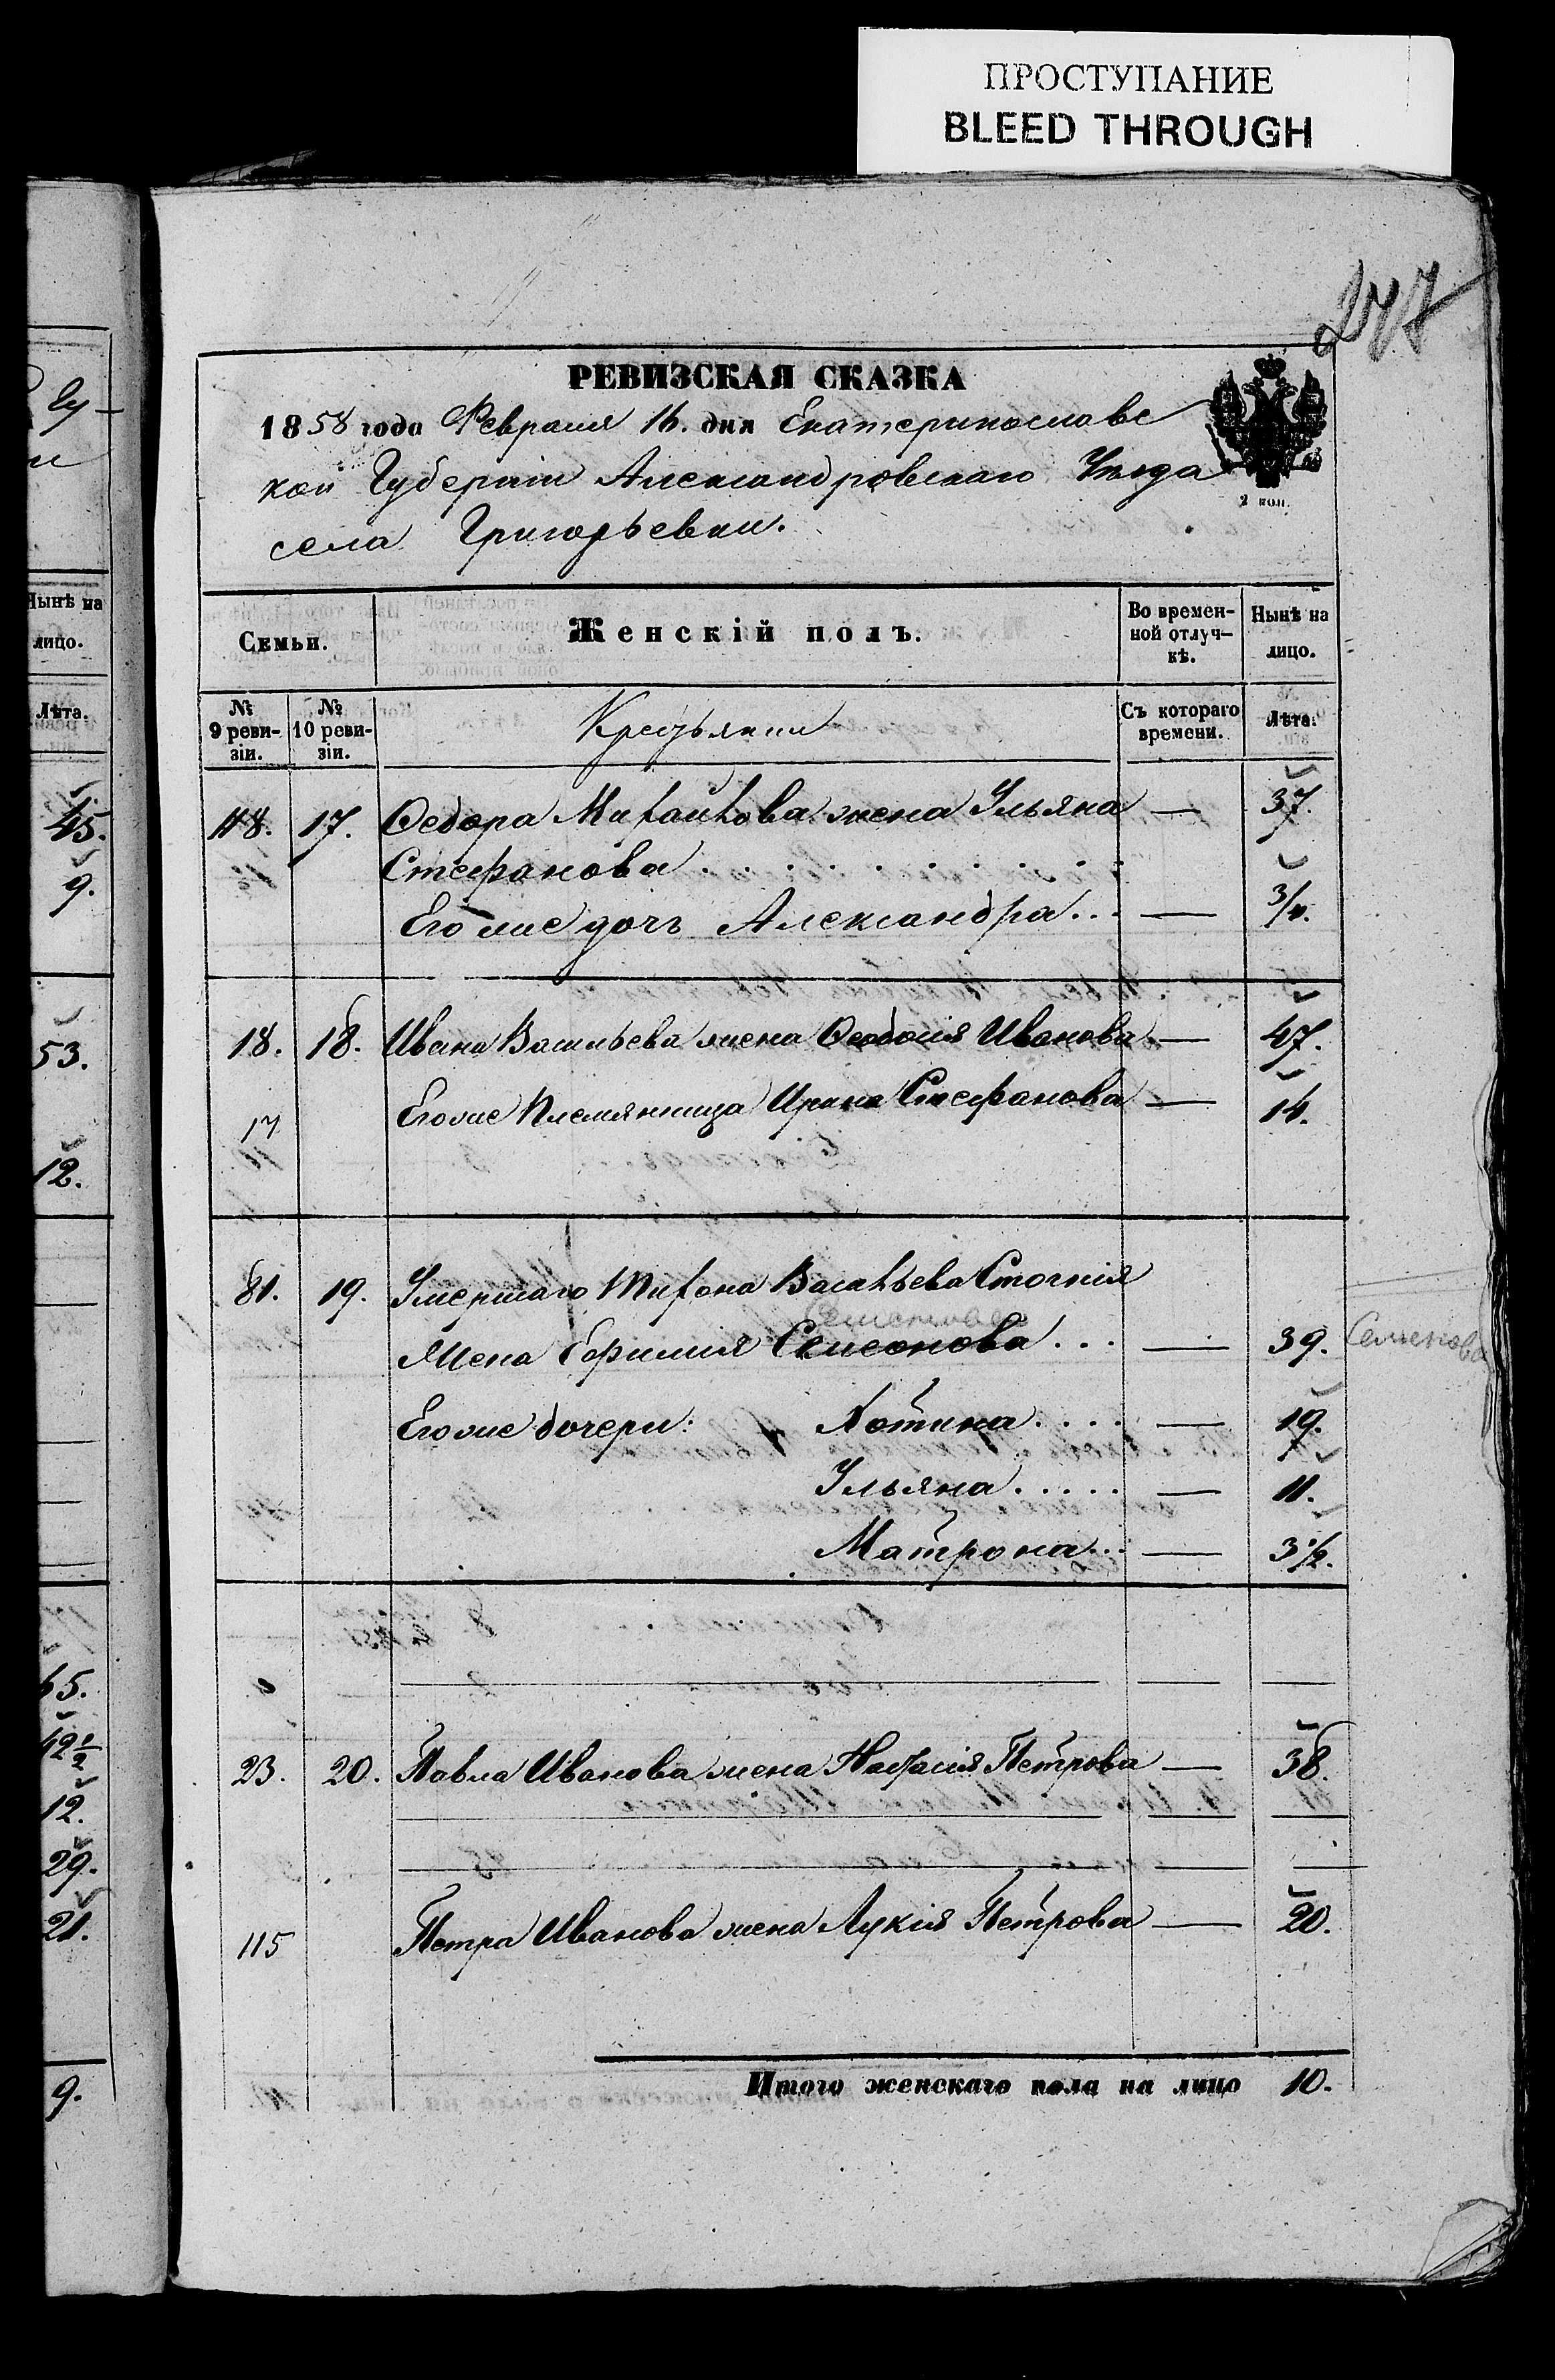 ПРОСТУПАНИЕ
BLEED THROUGH
247
РЕВИЗСКАЯ СКАЗКА
1858 года Февраля 16. дня Екатеринославс
кой Губерніи Александровскаго Уѣзда
2 коп.
села Григорьевки.
Семьи. Женскій полъ. Во времен-ной отлуч-кѣ. Нынѣ на лицо.
№ 9 реви-зіи. № 10 реви-зіи. Съ котораго времени. Лѣта.
48. 17. Ѳедора Михайлова жена Ульяна — 37.
Стефанова
Его же дочь Александра... —
18. 18. Ивана Васильева жена Ѳеодосія Иванова — 47.
17 Его же Племянница Ирина Стефанова — 14.
81. 19. Умершаго Тихона Васильева
Жена Ефимія Семенова ... — 39. Семенова
Его же дочери: Хотина .... — 19.
Ульяна ..... — 11.
Матрона... — 3½.
23. 20. Павла Иванова жена Настасія Петрова — 38.
115 Петра Иванова жена Лукія Петрова — 20.
Итого женскаго пола на лицо 10.
Нынѣ на
лицо.
Лѣта.
45.
9.
53.
12.
42½
12.
29.
21.
9.